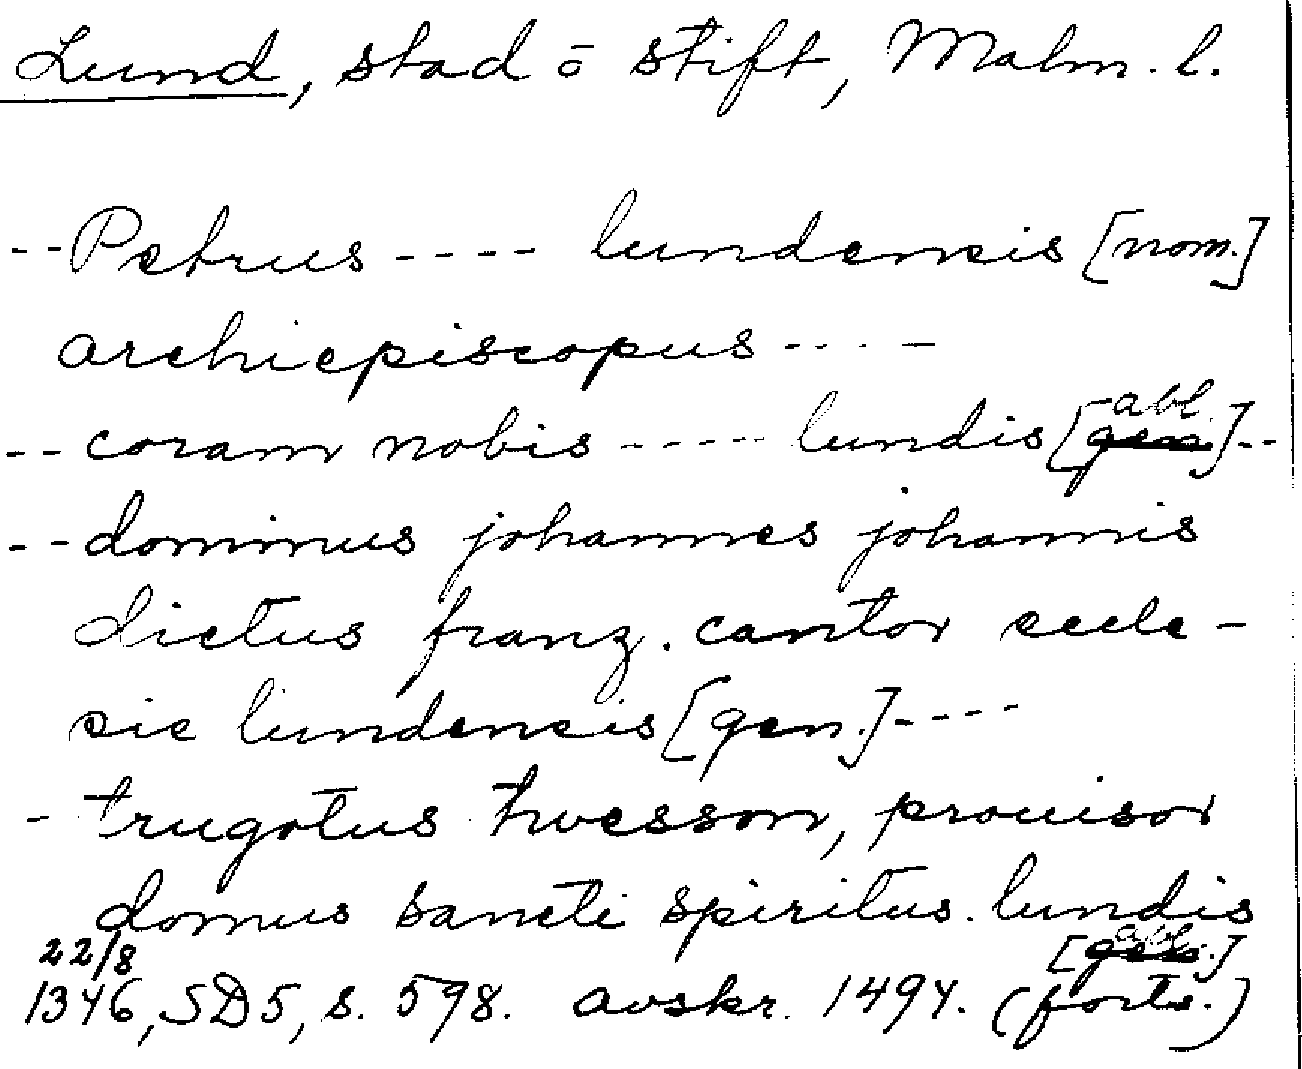 Lund, stad o stift, Malm. l.
-- Petrus ---- lundensis [nom.]
archiepiscopus ----
-- coram nobis ----- lundis [gen. abl.] --
-- dominus johannes johannis
dictus franz. cantor eccle-
sie lundensis [gen.] ----
- trugotus twesson, prouisor
domus sancti spiritus. lundis
22/8 [gen. abl.]
1346, SD5, s. 598. avskr. 1494. (forts.)